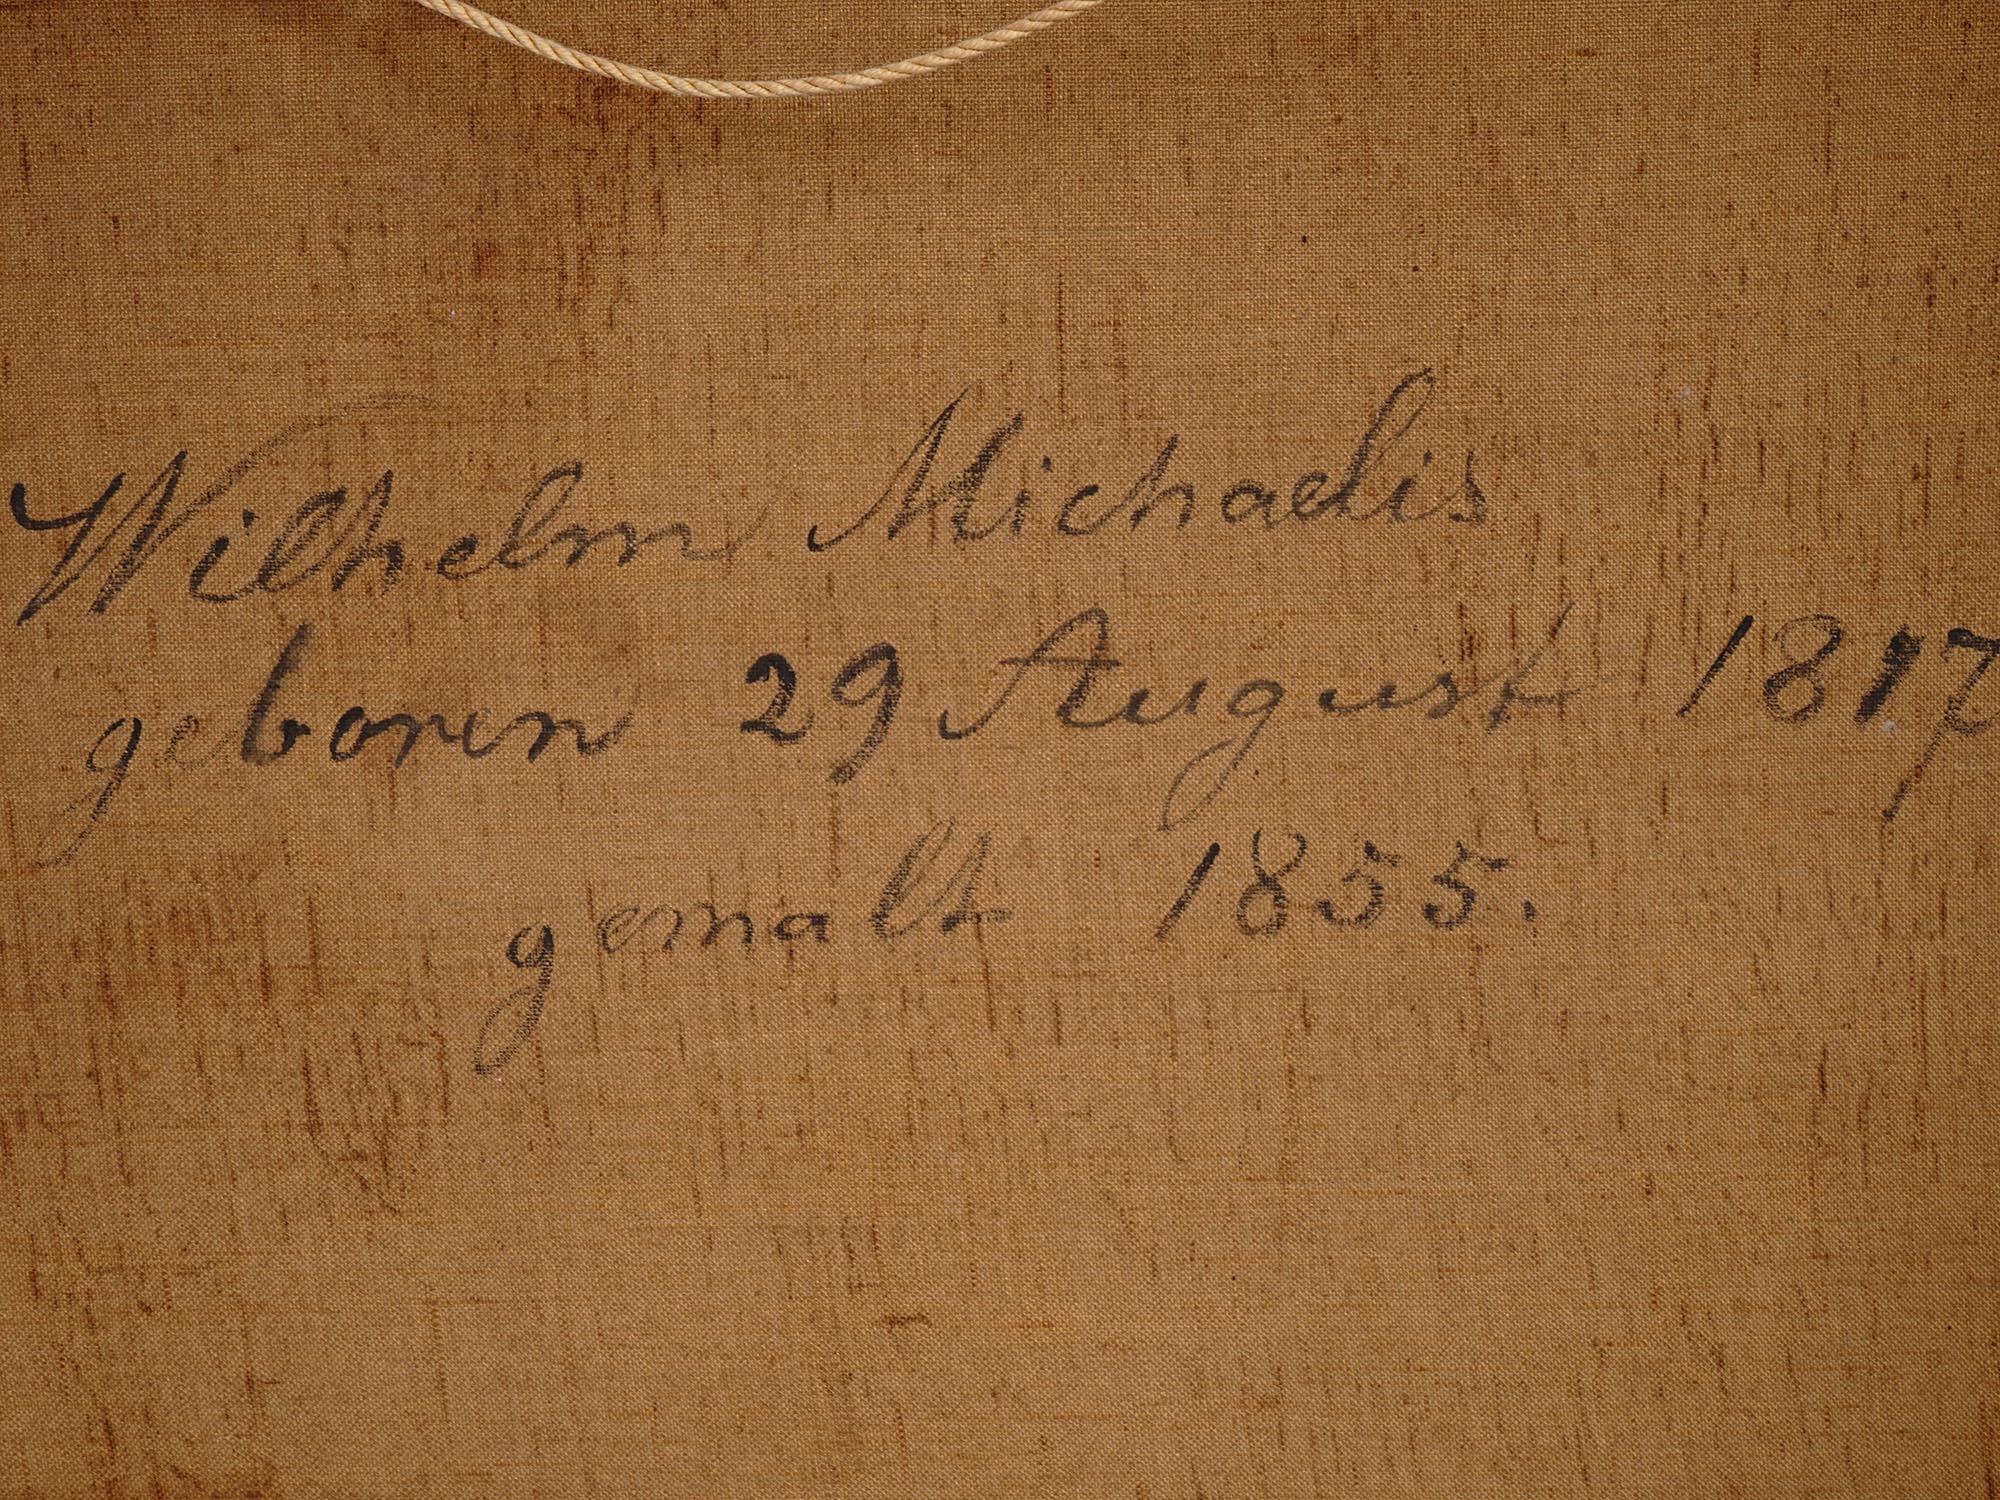 Wilhelm Michaelis
geboren 29 August 1817
gemalt 1855.